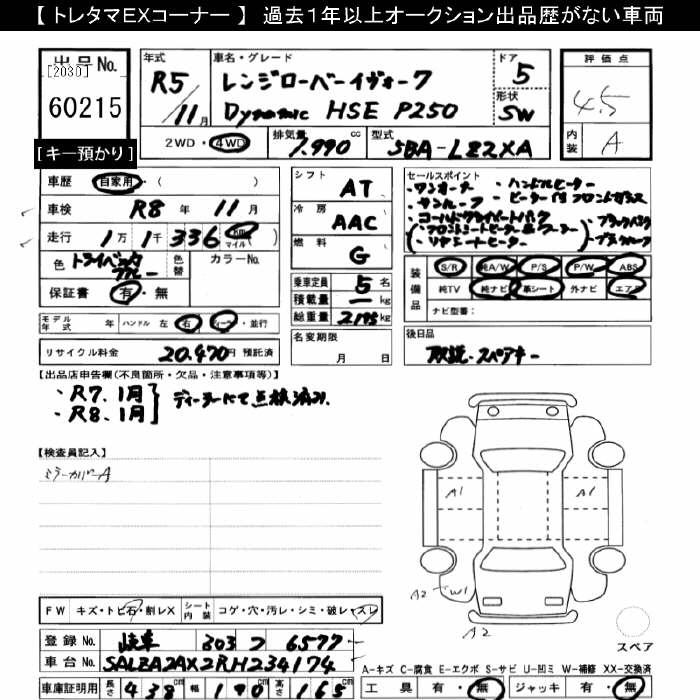 【 トレタマEXコーナー 】 過去1年以上オークション出品歴がない車両
出品No.
[2030]
60215
[キー預かり]
年式
R5/11月
車名・グレード
レンジローバーイヴォーク
Dynamic HSE P250
ドア
5
形状
SW
評価点
4.5
内装
A
2WD・4WD
排気量
1,990 cc
型式
5BA-LZ2XA
車歴 自家用・( )
車検 R8 年 11 月
走行 1万 1千 336 km マイル
色 トライベッカブルー 色替 カラーNo.
保証書 有・無
シフト AT
冷房 AAC
燃料 G
セールスポイント
・ワンオーナー ・ハンドルヒーター
・サンルーフ ・ヒーター付フロントガラス
・コールドクライメートパック ・ブラックパック
(・フロントシートヒーター&クーラー
・リヤシートヒーター) ・ブラックルーフ
装備品
S/R 純A/W P/S P/W ABS
純TV 純ナビ 革シート 外ナビ エアB
ナビ型番:
乗車定員 5 名
積載量 ー kg
総重量 2195 kg
モデル年式 年 ハンドル 左 右 ディーラー・並行
リサイクル料金 20,470 円 預託済
名変期限
月 日
後日品
取説・スペアキー
【出品店申告欄(不良箇所・欠品・注意事項等)】
・R7.1月
・R8.1月
ディーラーにて点検済み.
【検査員記入】
ミラーカバーA
A1 A1
A2 W1
A2
スペア
FW キズ・トビ石・割レX シート内装 コゲ・穴・汚レ・シミ・破レ・スレ
登録No. 岐阜 303 つ 6577
車台No. SALZA2AX2RH234174
車庫証明用 長さ 438 cm 幅 190 cm 高さ 165 cm
A-キズ C-腐食 E-エクボ S-サビ U-凹ミ W-補修 XX-交換済
工具 有・無 ジャッキ 有・無